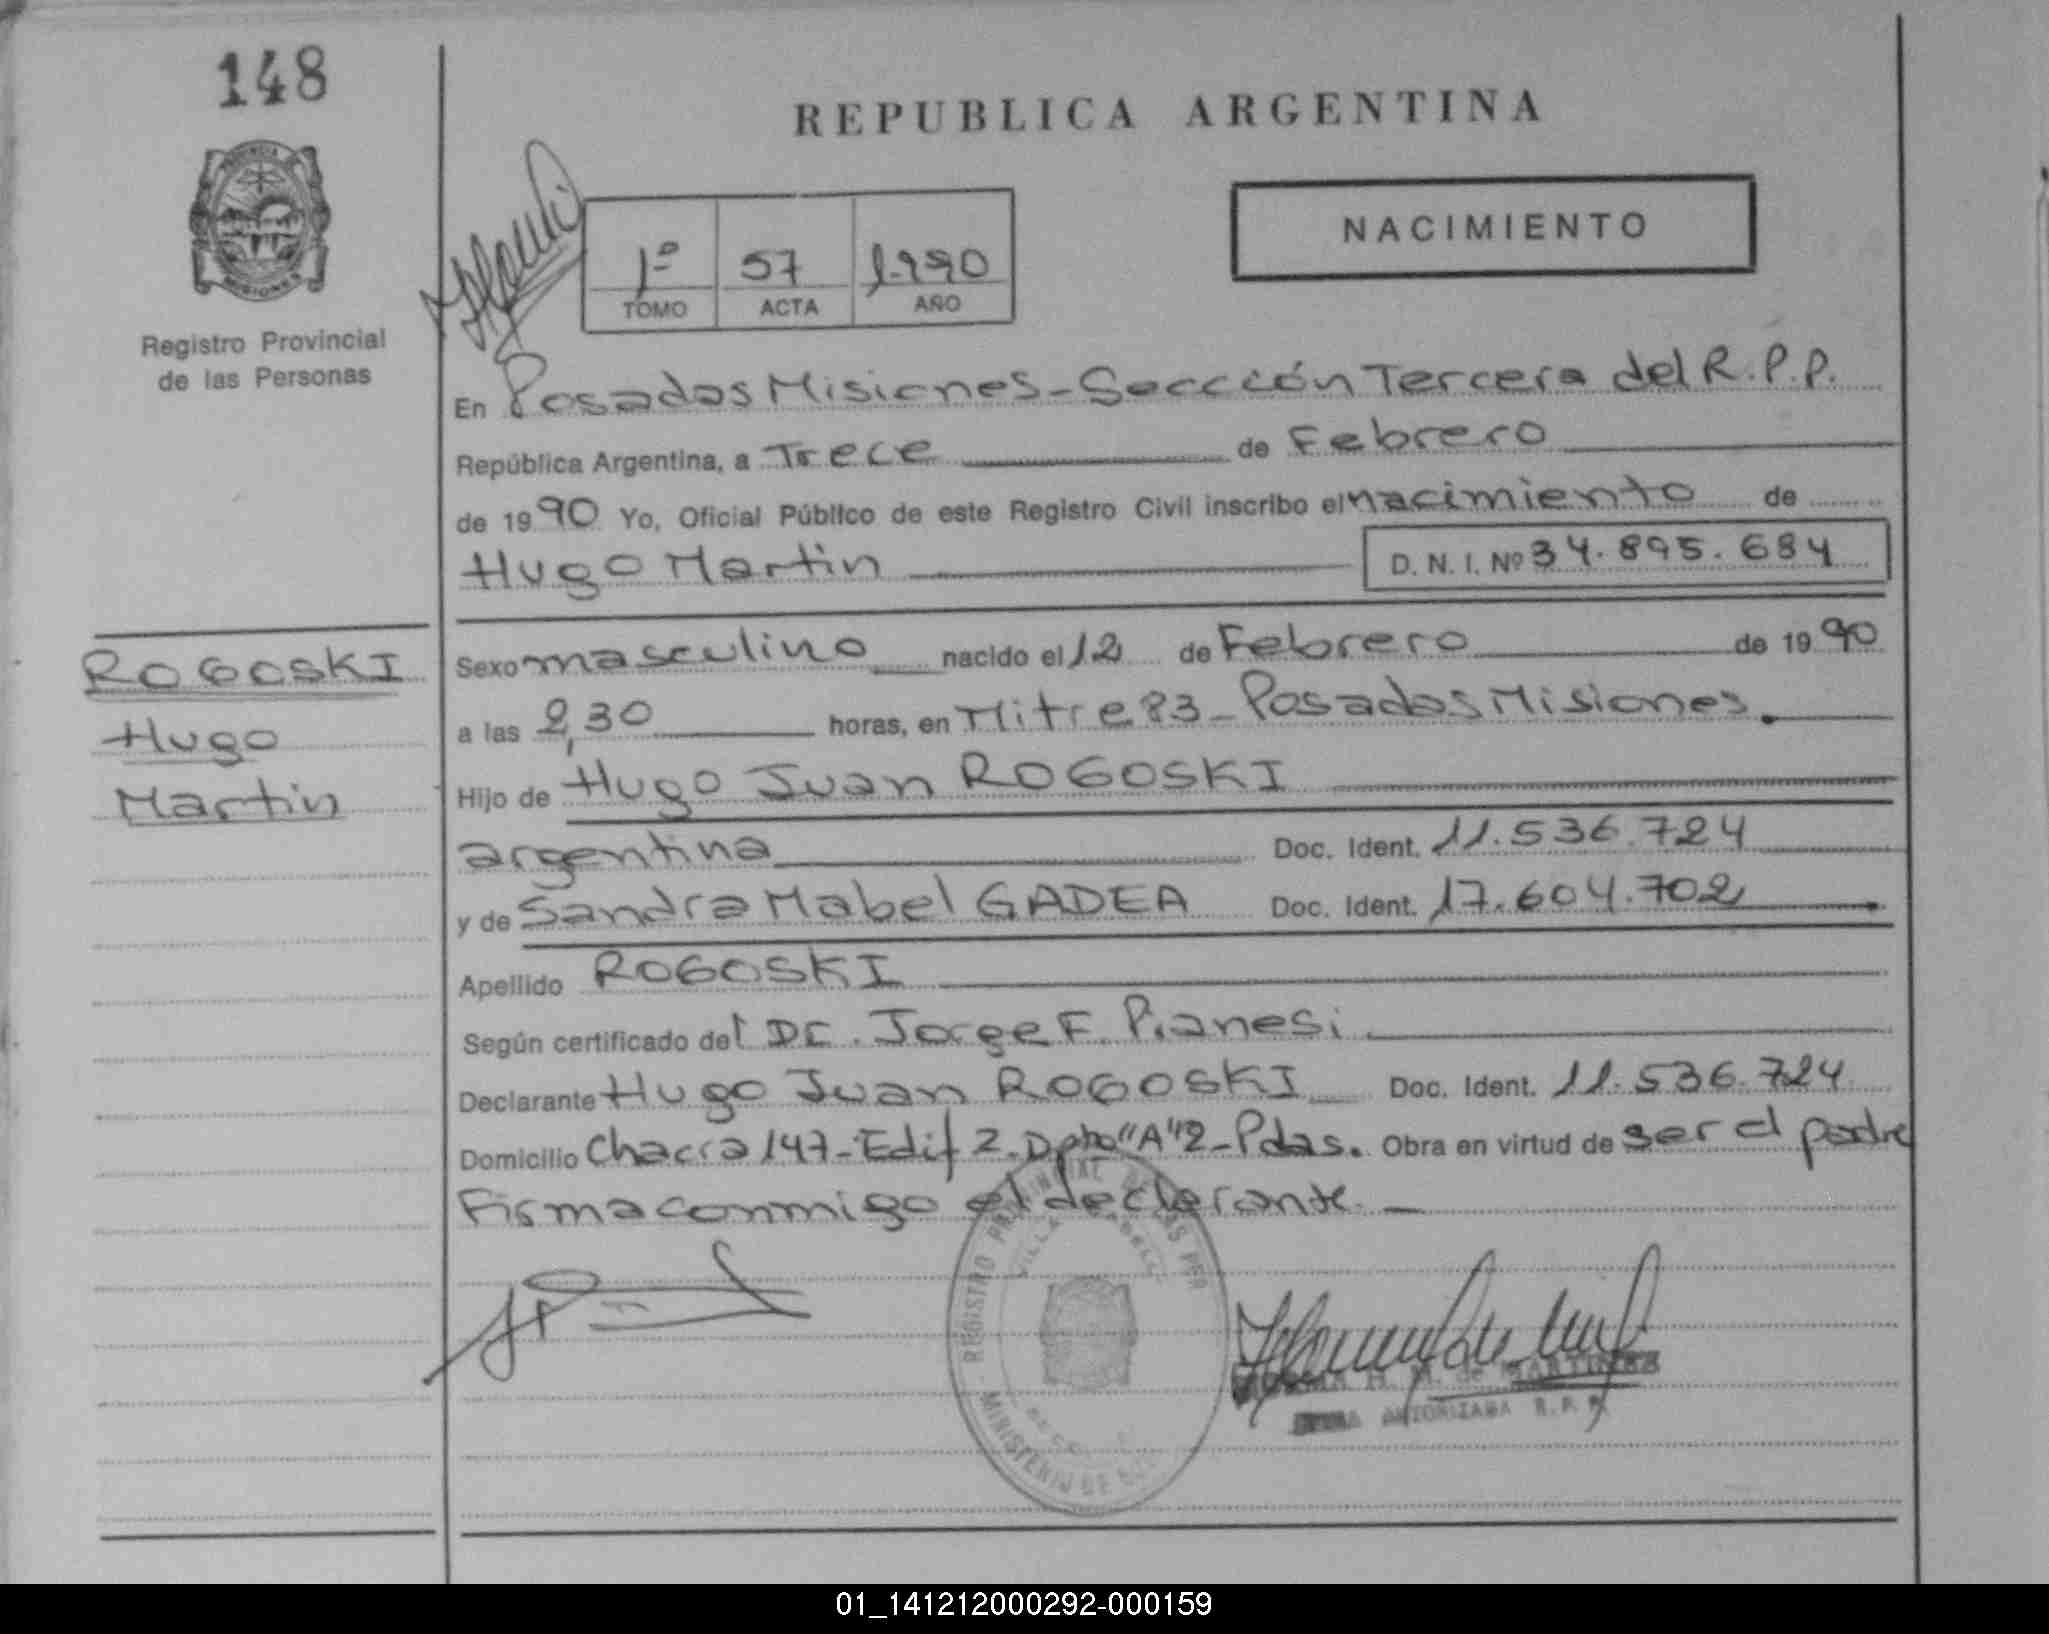 148
REPUBLICA ARGENTINA
NACIMIENTO
1º 57 1.990
TOMO ACTA AÑO
PROVINCIA DE
MISIONES
Registro Provincial
de las Personas
En Posadas Misiones - Seccción Tercera del R.P.P.
República Argentina, a Trece de Febrero
de 1990 Yo, Oficial Público de este Registro Civil inscribo el nacimiento de
Hugo Martin D. N. I. Nº 34.895.684
ROGOSKI
Hugo
Martin
Sexo masculino nacido el 12 de Febrero de 1990
a las 2,30 horas, en Mitre 83 - Posadas Misiones.
Hijo de Hugo Juan ROGOSKI
argentina Doc. Ident. 11.536.724
y de Sandra Mabel GADEA Doc. Ident. 17.604.702
Apellido ROGOSKI
Según certificado del Dr. Jorge F. Pianesi
Declarante Hugo Juan ROGOSKI Doc. Ident. 11.536.724
Domicilio Chacra 147 - Edif 2 - Dpto "A" 2 - Pdas. Obra en virtud de ser el padre
Firma conmigo el declarante. -
REGISTRO PROVINCIAL DE LAS PER
VILLA
MINISTERIO DE
H. M. de MARTINEZ
AUTORIZADA R.P.P.
01_141212000292-000159